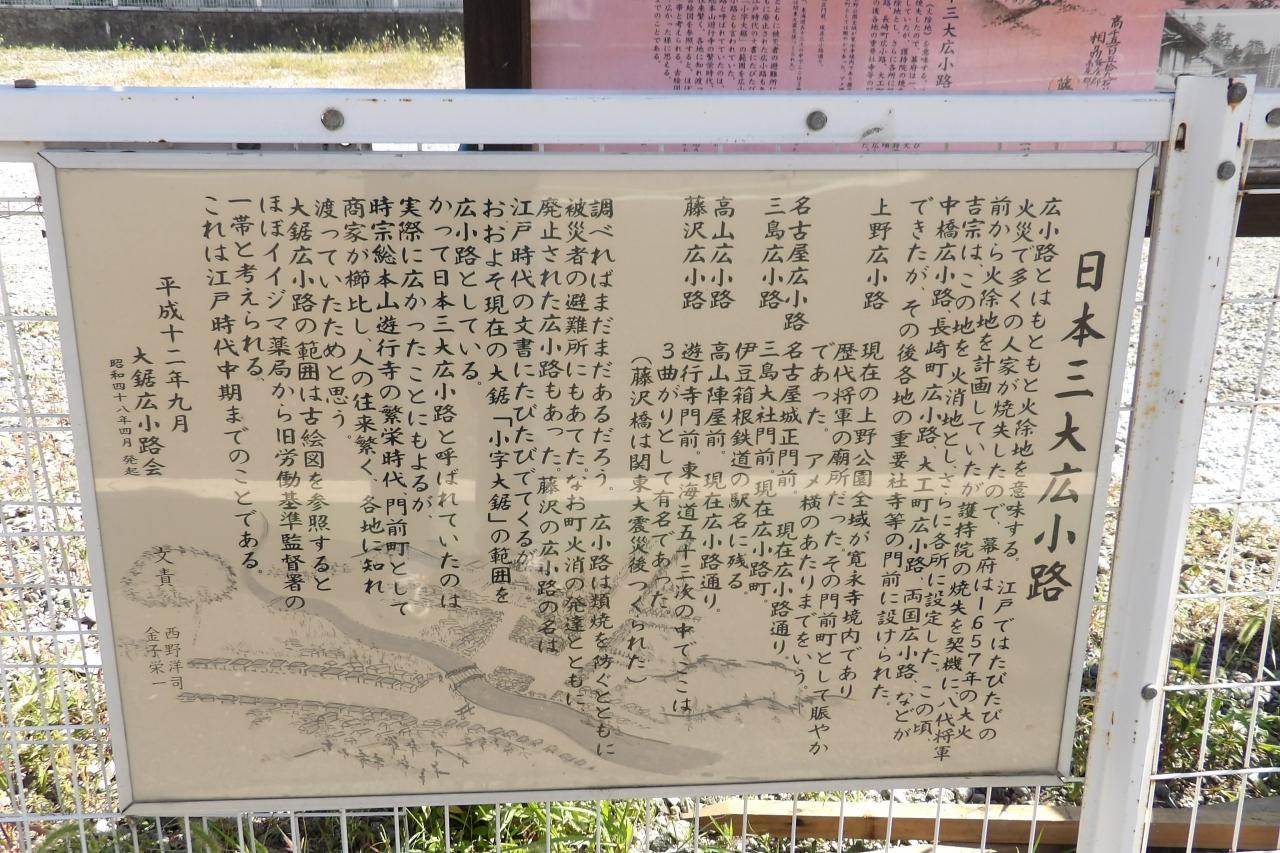 日本三大広小路
広小路とはもともと火除地を意味する。江戸ではたびたびの
火災で多くの人家が焼失したので、幕府は1657年の大火
前から火除地を計画していたが護持院の焼失を契機に八代将軍
吉宗は、この地を火消地とし、さらに各所に設定した。この頃、
中橋広小路、長崎町広小路、大工町広小路、両国広小路、などが
できたが、その後各地の重要社寺等の門前に設けられた。
上野広小路
現在の上野公園全域が寛永寺境内であり
歴代将軍の廟所だった。その門前町として賑やか
であった。アメ横のあたりまでをいう。
名古屋広小路
名古屋城正門前。現在広小路通り
三島広小路
三島大社門前。現在広小路町。
伊豆箱根鉄道の駅名に残る
高山広小路
高山陣屋前。現在広小路通り。
藤沢広小路
遊行寺門前。東海道五十三次の中でここは
3曲がりとして有名であった
(藤沢橋は関東大震災後つくられた)
調べればまだまだあるだろう。広小路は類焼を防ぐとともに
被災者の避難所にもあてた。なお町火消の発達とともに、
廃止された広小路もあった。藤沢の広小路の名は
江戸時代の文書にたびたびでてくるが
おおよそ現在の大鋸「小字大鋸」の範囲を
広小路としている。
かって日本三大広小路と呼ばれていたのは
実際に広かったことにもよるが
時宗総本山遊行寺の繁栄時代、門前町として
商家が櫛比し、人の往来繁く、各地に知れ
渡っていたためと思う。
大鋸広小路の範囲は古絵図を参照すると
ほぼイイジマ薬局から旧労働基準監督署の
一帯と考えられる、
これは江戸時代中期までのことである。
平成十二年九月
大鋸広小路会
昭和四十八年四月 発起
文責
西野洋司
金子栄一
三大広小路